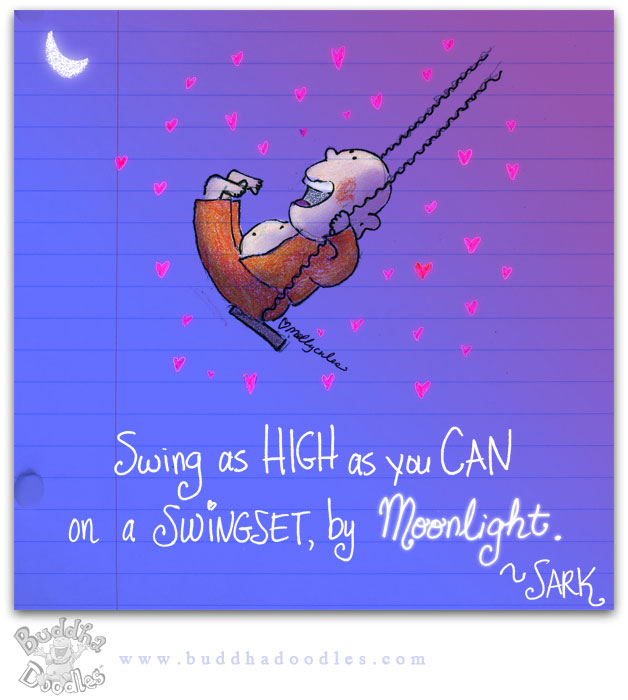 ♡mollycules
Swing as HIGH as you CAN
on a SWiNGSET, by Moonlight.
~SARK
Buddha
Doodles
www.buddhadoodles.com